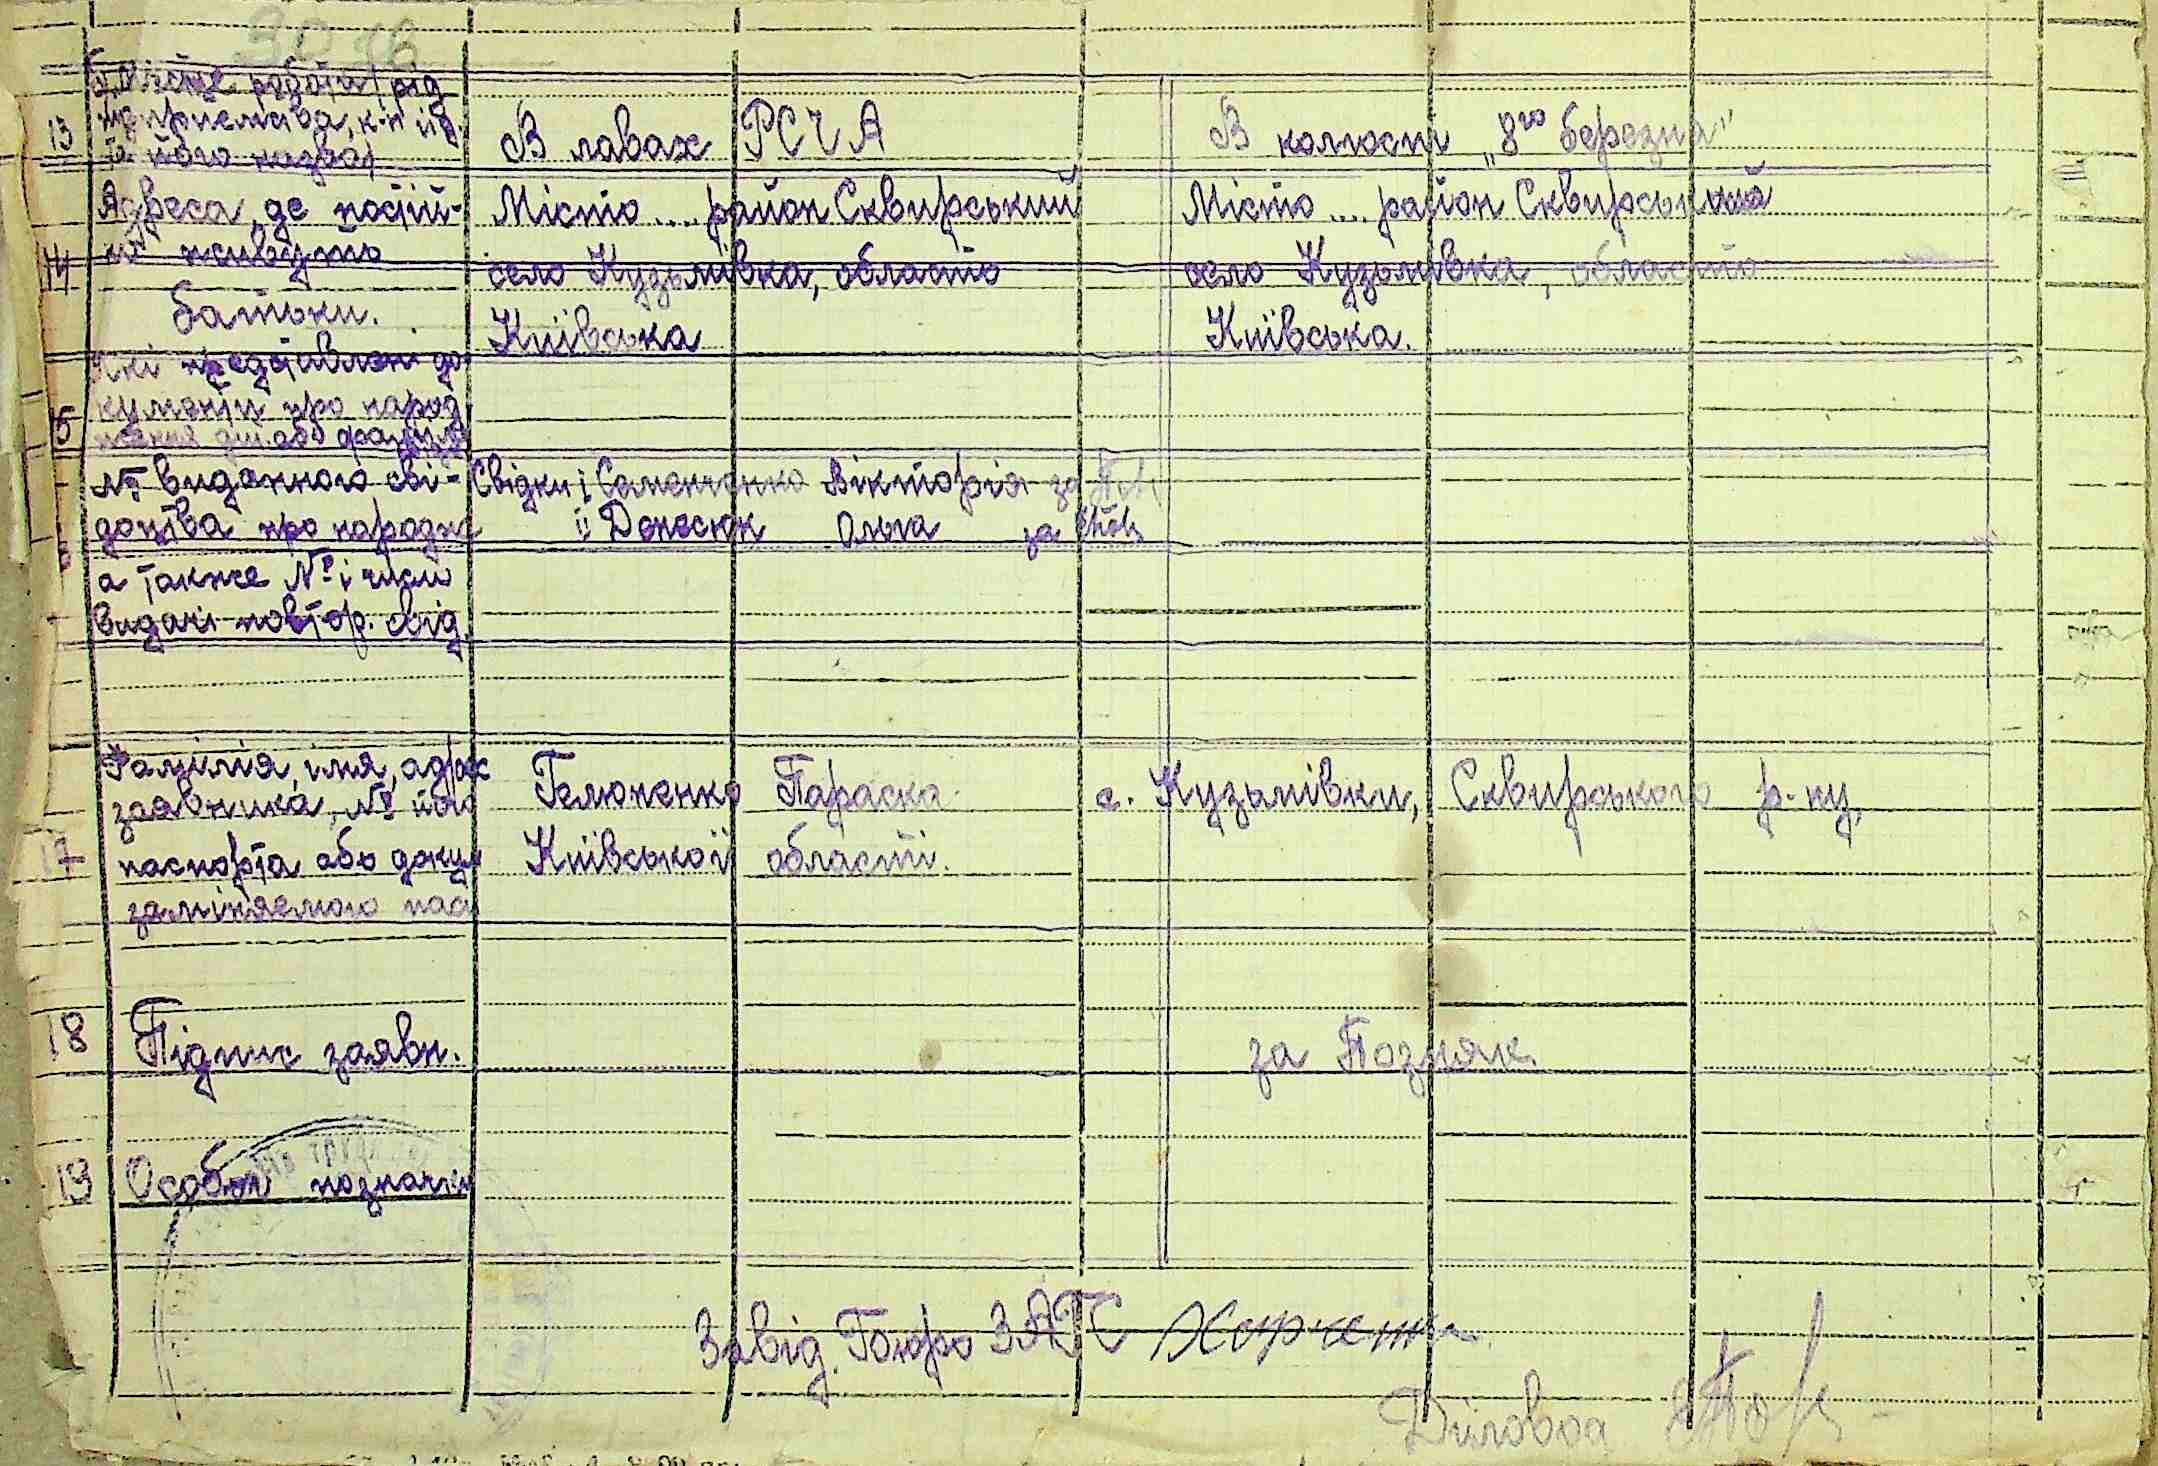 б, Місце роботи, рід
підприємства, к-п
13 та його назва)
В лавах РСЧА
В колгоспі „8го березня"
Адреса, де постій-
14 но живуть
батьки.
Місто .... район Сквирський
село Кузьмівка, область
Київська
Місто .... район Сквирський
село Кузьмівка, область
Київська.
Які представлені до-
кументи про народ
15 ження дит. або
№ виданного сві-
доцтва про народж
а также № і число
видачі повтор. свід.
Свідки і Семенченко Вікторія за
іі Денесюк Ольга за
Фамілія, імя, адрес
заявника, № його
17 паспорта або докум
заміняемого пас
Гелюженко Параска с. Кузьмівки, Сквирського р-ну,
Київської області.
18 Підпис заявн.
за Позняк
19 Особові позначки
Завід. Бюро ЗАГС
Діловод